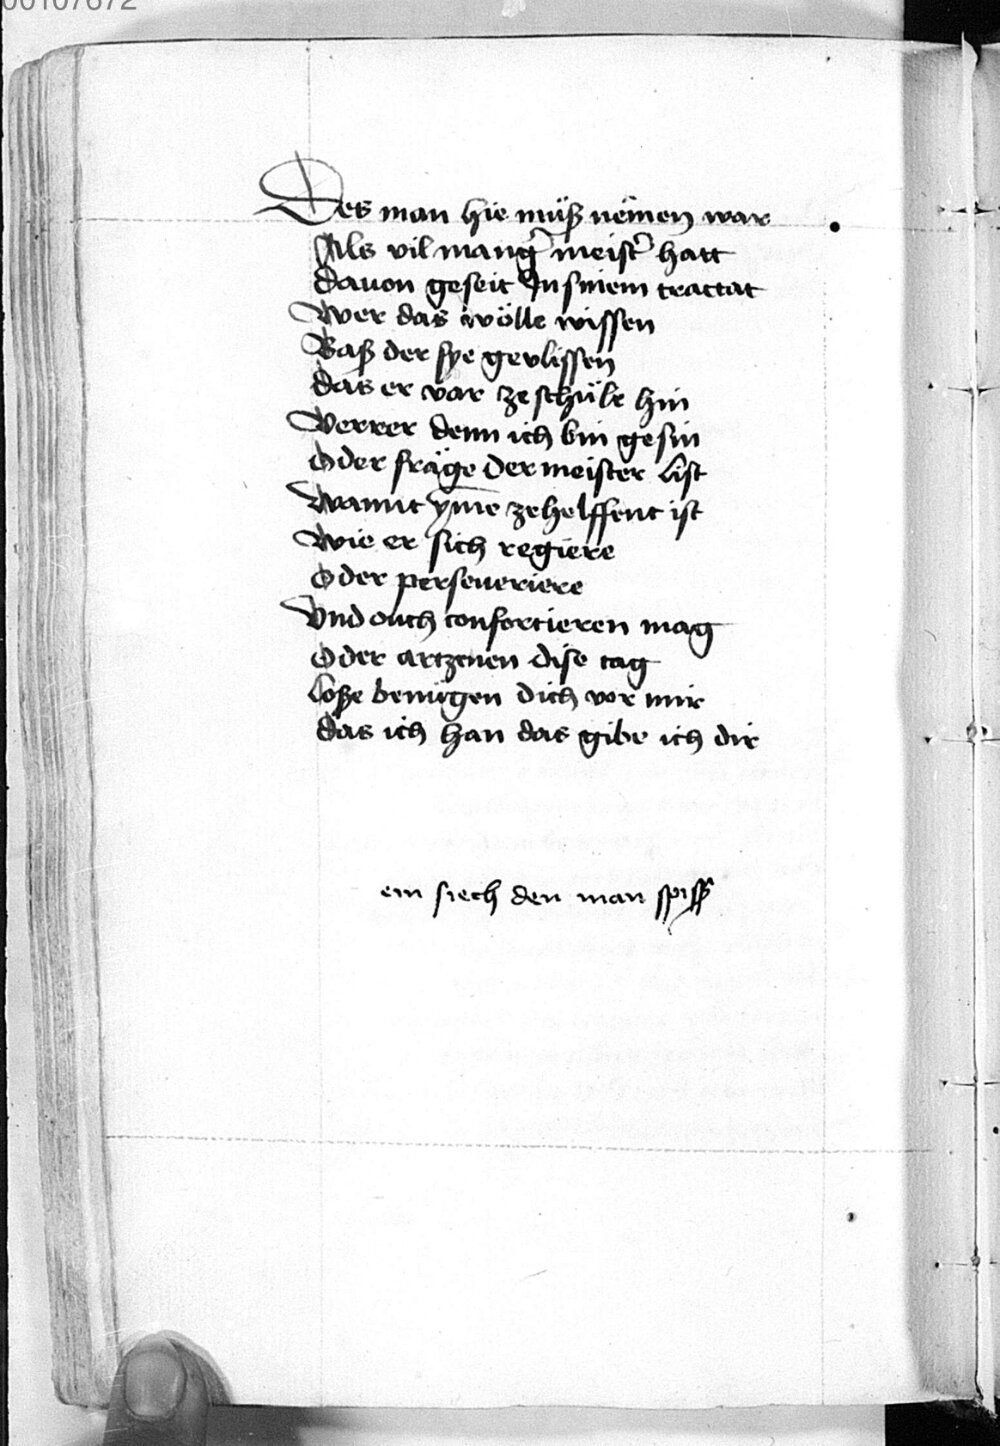 00107672
Des man hie müsß nēmen war
Als vil mang͛ meist͛ hatt
Dauon geseit In sinem tracttat
Wer das wölle wissen
Basß der sye gevlissen
Das er var ze schůle hin
Verrer denn ich bin gesin
Oder fräge der meister list
Wamit ym̄e ze helffent ist
Wie er sich regiere
Oder perseueriere
Vnd ouch confortieren mag
Oder artznen dise tag
Losße benügen dich vor mir
Das ich han das gibe ich dir
ein siech den man